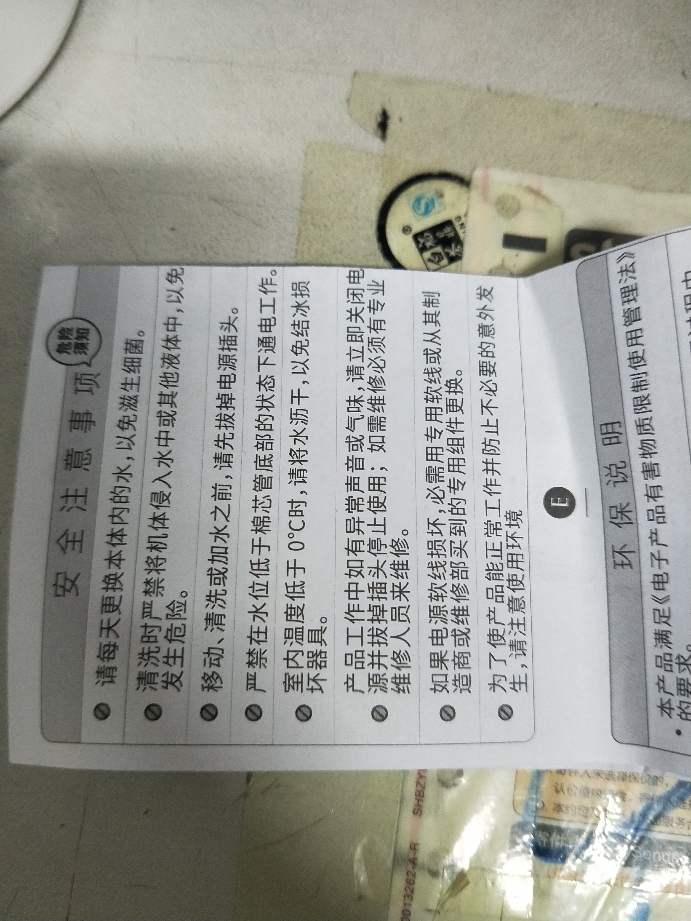 安全注意事项
危险
须知
请每天更换本体内的水,以免滋生细菌。
清洗时严禁将机体侵入水中或其他液体中,以免
发生危险。
移动、清洗或加水之前,请先拔掉电源插头。
严禁在水位低于棉芯管底部的状态下通电工作。
室内温度低于 0℃时,请将水沥干,以免结冰损
坏器具。
产品工作中如有异常声音或气味,请立即关闭电
源并拔掉插头停止使用；如需维修必须有专业
维修人员来维修。
如果电源软线损坏,必需用专用软线或从其制
造商或维修部买到的专用组件更换。
为了使产品能正常工作并防止不必要的意外发
生,请注意使用环境
E
环保说明
• 本产品满足《电子产品有害物质限制使用管理法》
的要求。
0013262-A-R
SHBZY